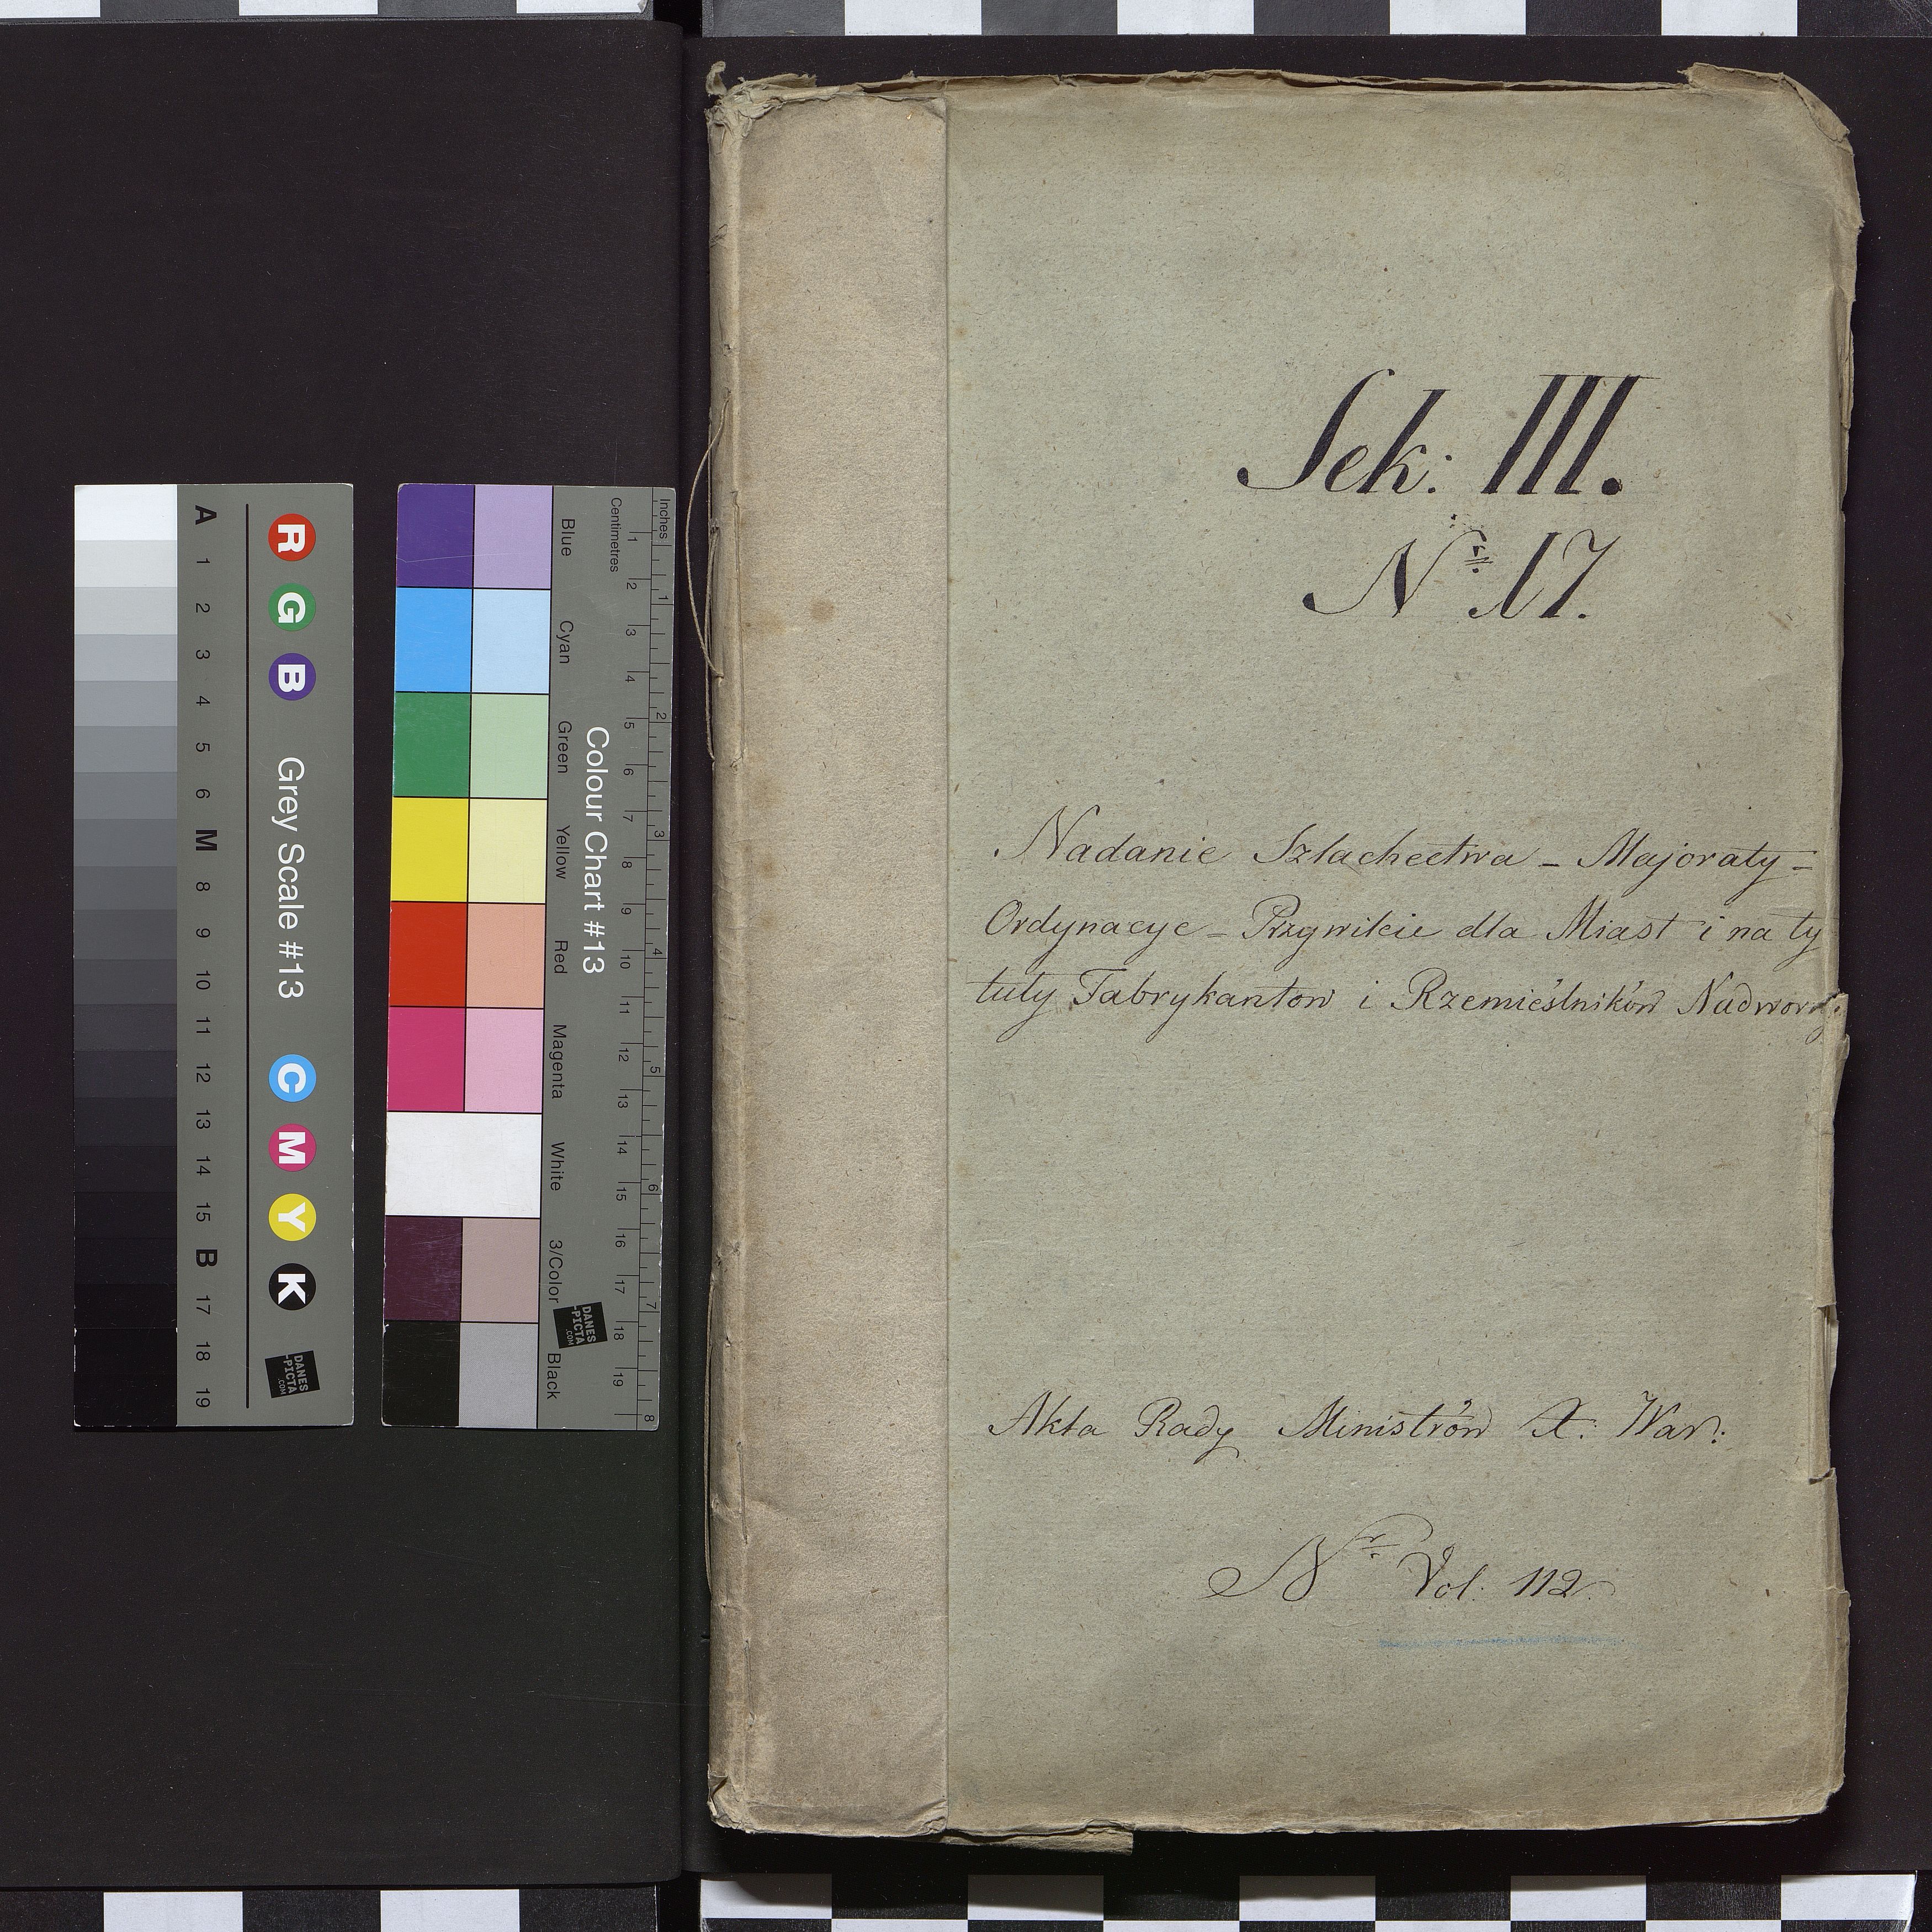 Sek: III.
Nr 17.
Nadanie Szlachectwa - Majoraty -
Ordynacye - Przywileie dla Miast i na ty
tuły Fabrykantow i Rzemieślników Nadworn:
Akta Rady Ministrów X: War:
Nr Vol: 112.
A 1 2 3 4 5 6 M 8 9 10 11 12 13 14 15 B 17 18 19
R G B Grey Scale #13 C M Y K
DANES
-PICTA
.COM
Blue Cyan Green Yellow Red Magenta White 3/Color Black
Colour Chart #13
DANES
-PICTA
.COM
Centimetres 1 2 3 4 5 6 7 8 9 10 11 12 13 14 15 16 17 18 19
Inches 1 2 3 4 5 6 7 8